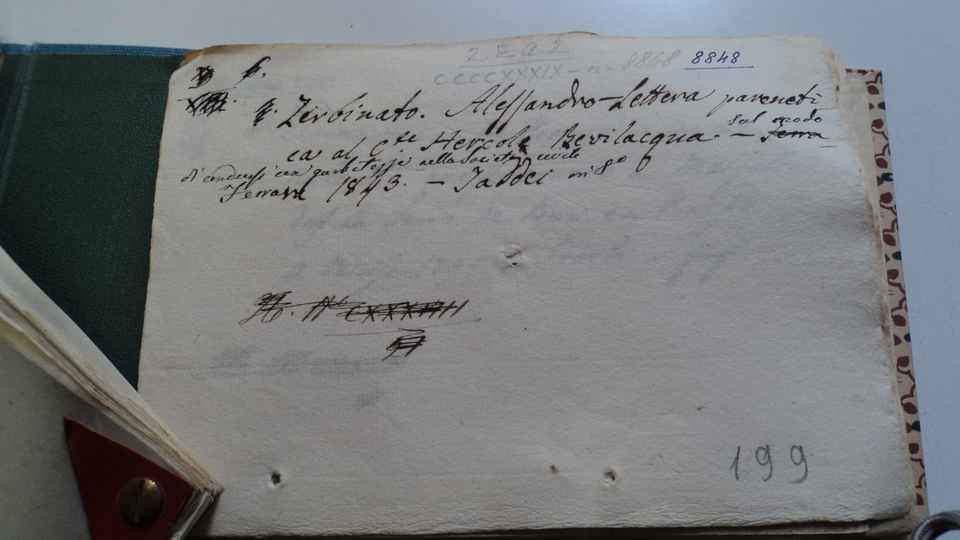 2 E @ 2
CCCCXXXIX - n - 8848 8848
6.
Zerbinato. Alessandro - Lettera pareneti
ca al Cte Hercole Bevilacqua. - sul modo
di condursi con nella Società civile
Ferrara 1843. - Taddei in 8o
199